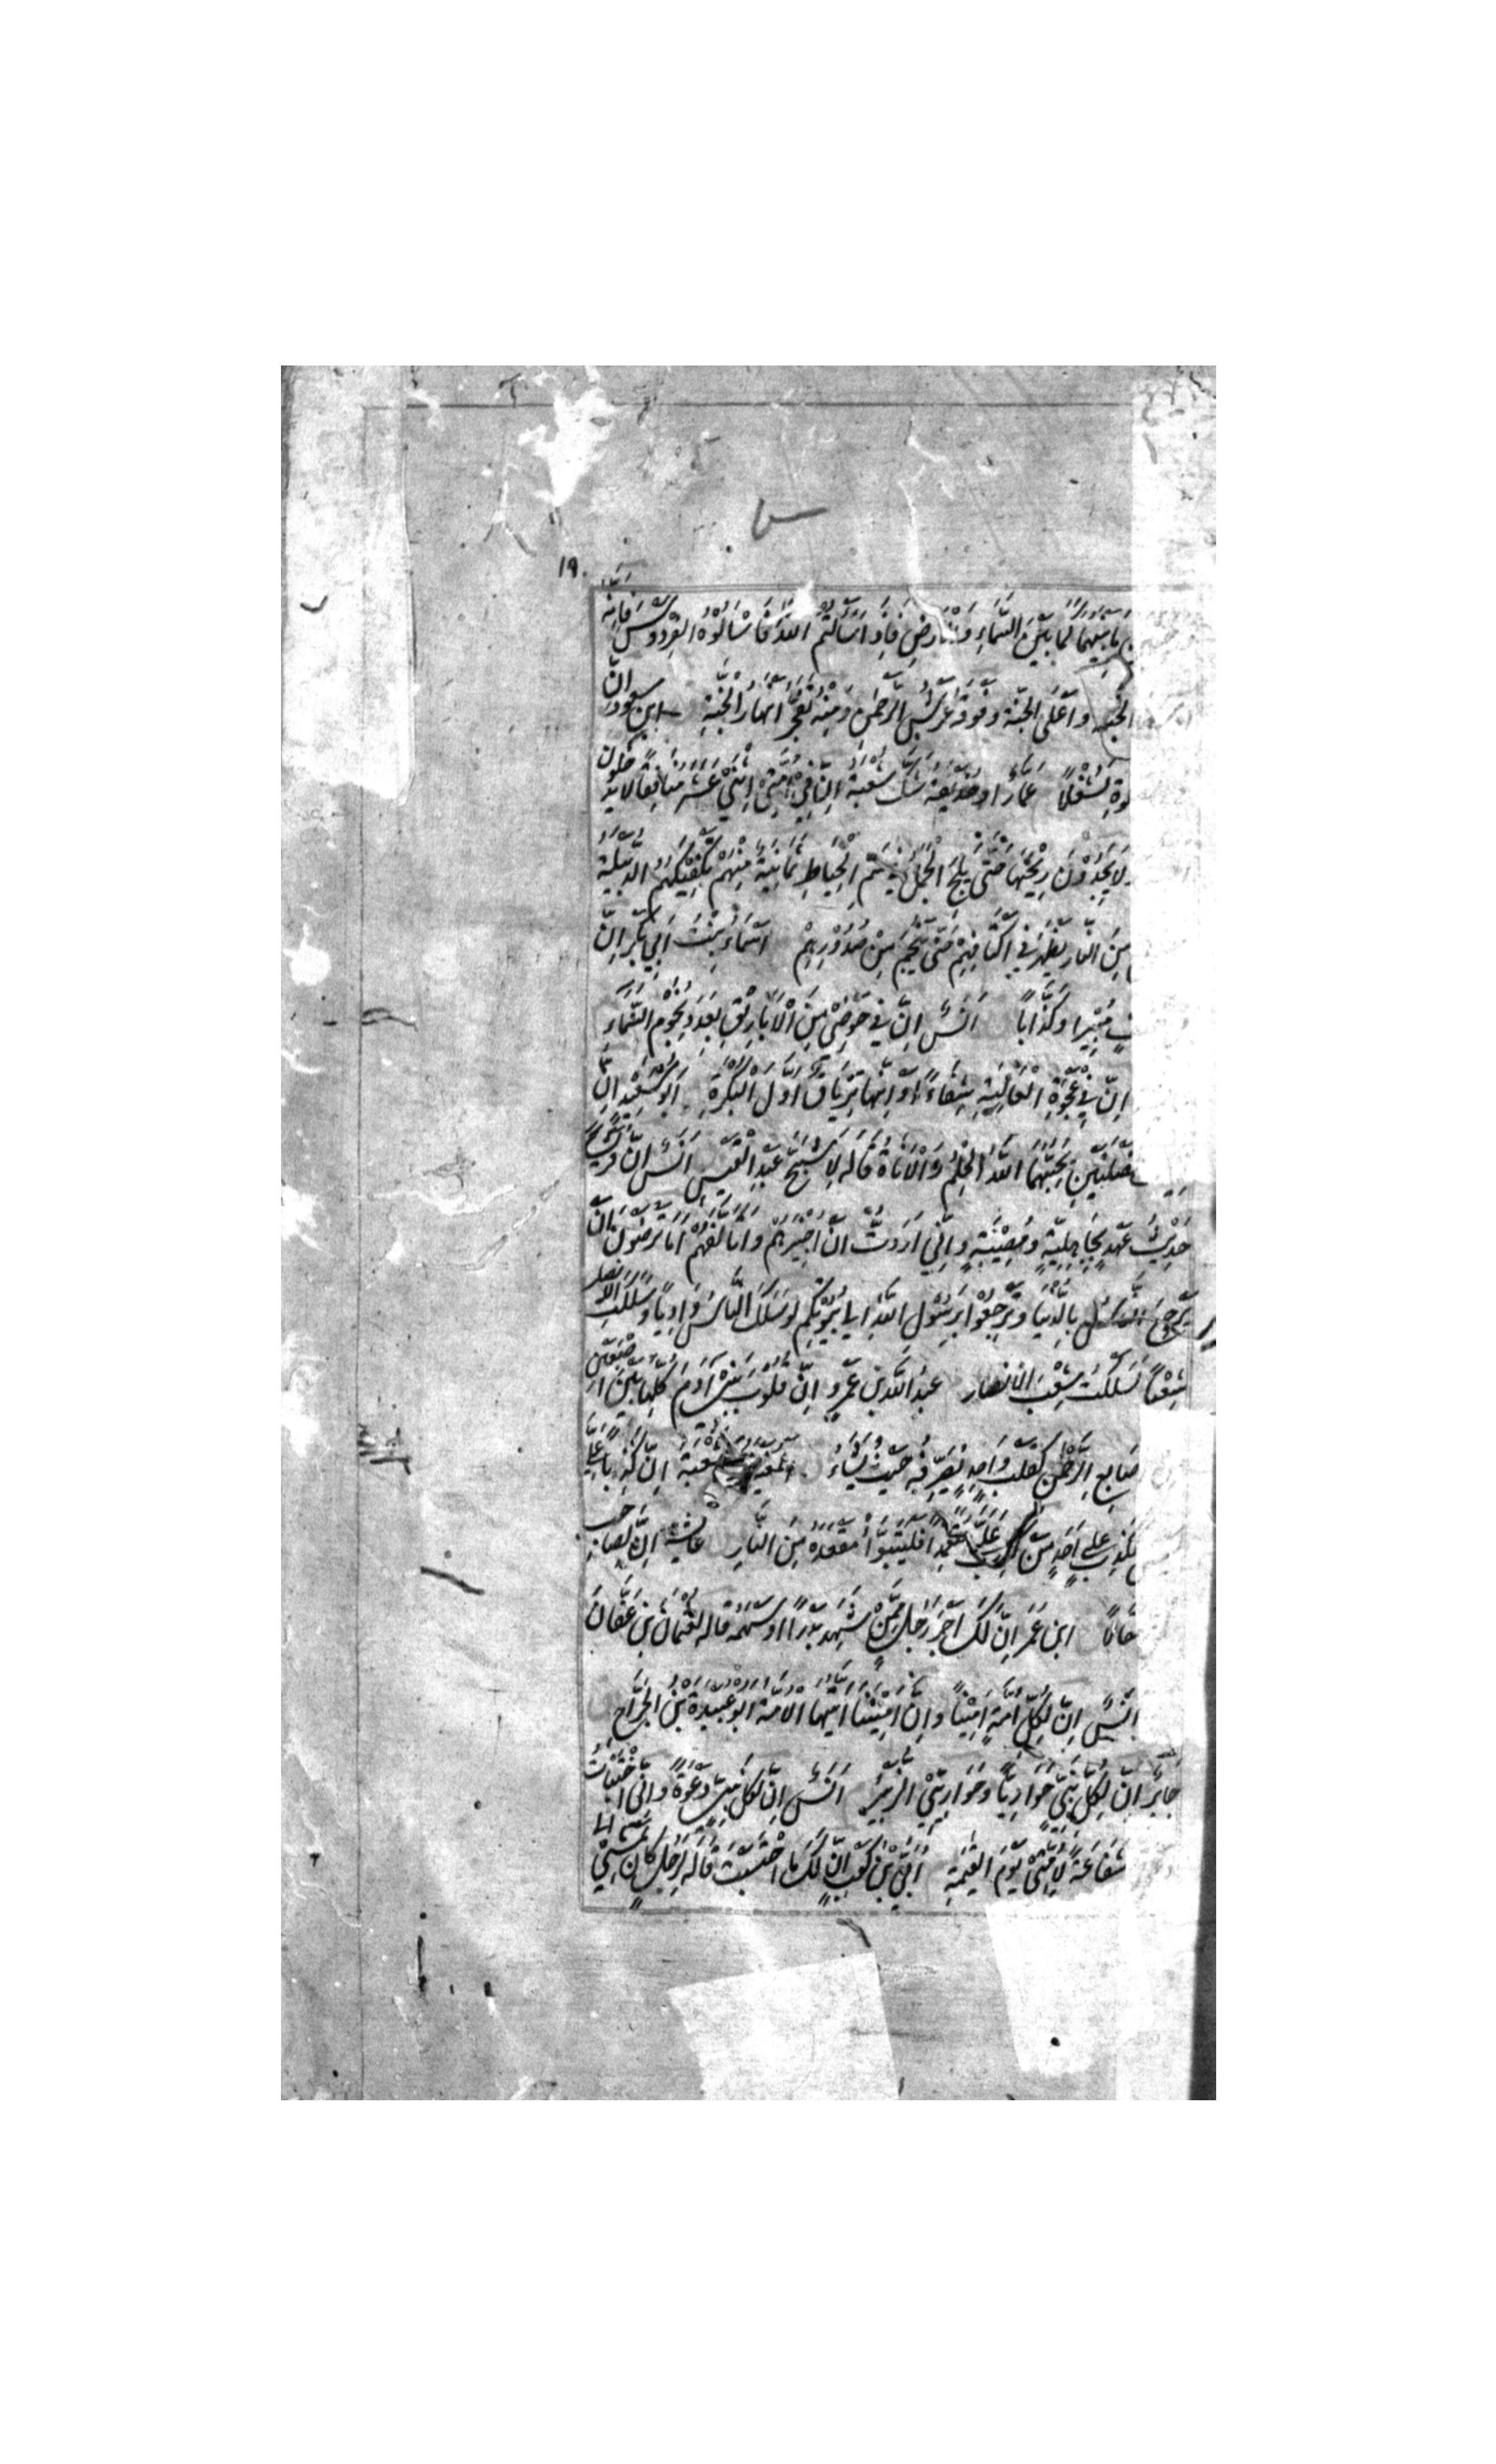 س
١٩٠
مَا بَيْنَهُمَا كَمَا بَيْنَ السَّمَاءِ وَالْاَرْضِ فَاِذَا سَاَلْتُمُ اللّٰهَ فَاسْاَلُوْهُ الْفِرْدَوْسَ فَاِنَّهٗ
الجنة وَاَعْلَى الْجَنَّةِ وَفَوْقَهٗ عَرْشُ الرَّحْمٰنِ وَمِنْهُ تَفَجَّرُ اَنْهَارُ الْجَنَّةِ ابن مسعود اِنَّ
لَشُغْلًا عَمَّارٌ اَوْ حُذَيْفَةُ شَكَّ شُعْبَةُ اِنَّ فِيْ اُمَّتِيْ اِثْنَيْ عَشَرَ مُنَافِقًا لَا يَدْخُلُوْنَ
وَلَا يَجِدُوْنَ رِيْحَهَا حَتّٰى يَلِجَ الْجَمَلُ فِيْ سَمِّ الْخِيَاطِ ثَمَانِيَةٌ مِنْهُمْ تَكْفِيْكَهُمُ الدُّبَيْلَةُ
مِنَ النَّارِ يَظْهَرُ فِيْ اَكْتَافِهِمْ حَتّٰى يَنْجُمَ مِنْ صُدُوْرِهِمْ اَسْمَاءُ بِنْتُ اَبِيْ بَكْرٍ اِنَّ
مُبِيْرًا وَكَذَّابًا اَنَسٌ اِنَّ فِيْ حَوْضِيْ مِنَ الْاَبَارِيْقِ بِعَدَدِ نُجُوْمِ السَّمَاءِ
اِنَّ فِيْ عَجْوَةِ الْعَالِيَةِ شِفَاءً اَوْ اِنَّهَا تِرْيَاقٌ اَوَّلَ الْبُكْرَةِ اَبُوْ سَعِيْدٍ اِنَّ
خَصْلَتَيْنِ يُحِبُّهُمَا اللّٰهُ الْحِلْمُ وَالْاَنَاةُ قَالَهٗ لِاَشَجِّ عَبْدِ الْقَيْسِ اَنَسٌ اِنَّ قُرَيْشًا
حَدِيْثُ عَهْدٍ بِجَاهِلِيَّةٍ وَمُصِيْبَةٍ وَاِنِّيْ اَرَدْتُ اَنْ اُجِيْزَهُمْ وَاَتَاَلَّفَهُمْ اَمَا تَرْضَوْنَ اَنْ
يَرْجِعَ النَّاسُ بِالدُّنْيَا وَتَرْجِعُوْا بِرَسُوْلِ اللّٰهِ اِلٰى بُيُوْتِكُمْ لَوْ سَلَكَ النَّاسُ وَادِيًا وَسَلَكَتِ الْاَنْصَارُ
شِعْبًا لَسَلَكْتُ شِعْبَ الْاَنْصَارِ عَبْدُ اللّٰهِ بْنُ عَمْرٍو اِنَّ قُلُوْبَ بَنِيْ اٰدَمَ كُلَّهَا بَيْنَ اِصْبَعَيْنِ
اَصَابِعِ الرَّحْمٰنِ كَقَلْبٍ وَاحِدٍ يُصَرِّفُهٗ حَيْثُ يَشَاءُ المغيرة بن شعبة اِنَّ كَذِبًا عَلَيَّ
ككذب على اَحَدٍ مَنْ كذب عَلَيَّ مُتَعَمِّدًا فَلْيَتَبَوَّاْ مَقْعَدَهٗ مِنَ النَّارِ عائشة اِنَّ لِصَاحِبِ
مَقَالًا ابن عُمَرَ اِنَّ لَكَ اَجْرَ رَجُلٍ مِمَّنْ شَهِدَ بَدْرًا وَسَهْمَهٗ قاله لِعُثْمَانَ بْنِ عَفَّانَ
اَنَسٌ اِنَّ لِكُلِّ اُمَّةٍ اَمِيْنًا وَاِنَّ اَمِيْنَنَا اَيَّتُهَا الْاُمَّةُ اَبُوْ عُبَيْدَةَ بْنُ الْجَرَّاحِ
جَابِرٌ اِنَّ لِكُلِّ نَبِيٍّ حَوَارِيًّا وَحَوَارِيِّ الزُّبَيْرُ اَنَسٌ اِنَّ لِكُلِّ نَبِيٍّ دَعْوَةً وَاِنِّي اخْتَبَاْتُ
شَفَاعَةً لِاُمَّتِيْ يَوْمَ الْقِيٰمَةِ اُبَيُّ بْنُ كَعْبٍ اِنَّ لَكَ مَا احْتَسَبْتَ قَالَهٗ لِرَجُلٍ كَانَ يَمْشِيْ